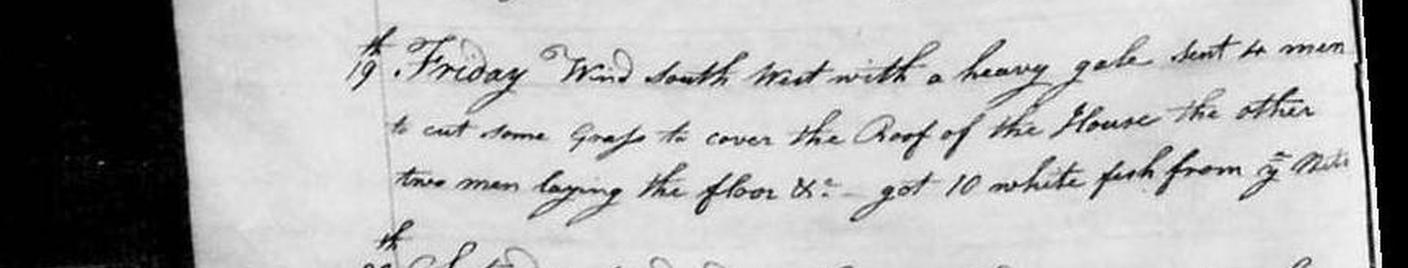 19th Friday Wind South West with a heavy gale sent 4 men
to cut some Grass to cover the Roof of the House the other
two men laying the floor &c. - got 10 white fish from ye Nets
th